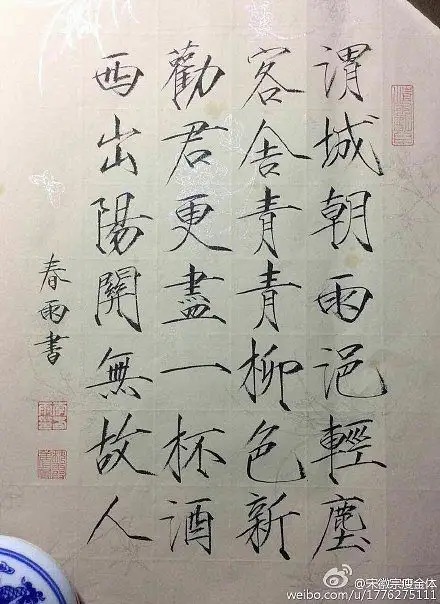 渭城朝雨浥輕塵
客舍青青柳色新
勸君更盡一杯酒
西出陽關無故人
春雨書
@宋徽宗瘦金体
weibo.com/u/1776275111